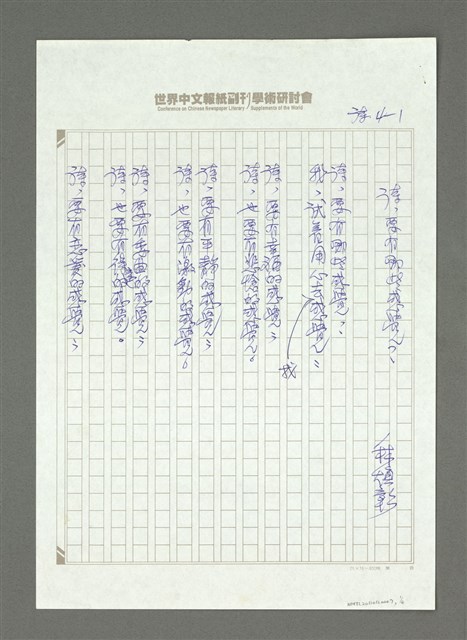 世界中文報紙副刊學術研討會
Conference on Chinese Newspaper Literary Supplements of the World
詩 4-1
詩，要有哪些感覺
林煥彰
詩，要有哪些感覺；
我，試著用心去感覺；
我
詩，要有幸福的感覺；
詩，也要有悲愴的感覺。
詩，要有平靜的感覺；
詩，也要有激動的感覺。
詩，要有
詩，也要有 的感覺。
詩，要有 的感覺；